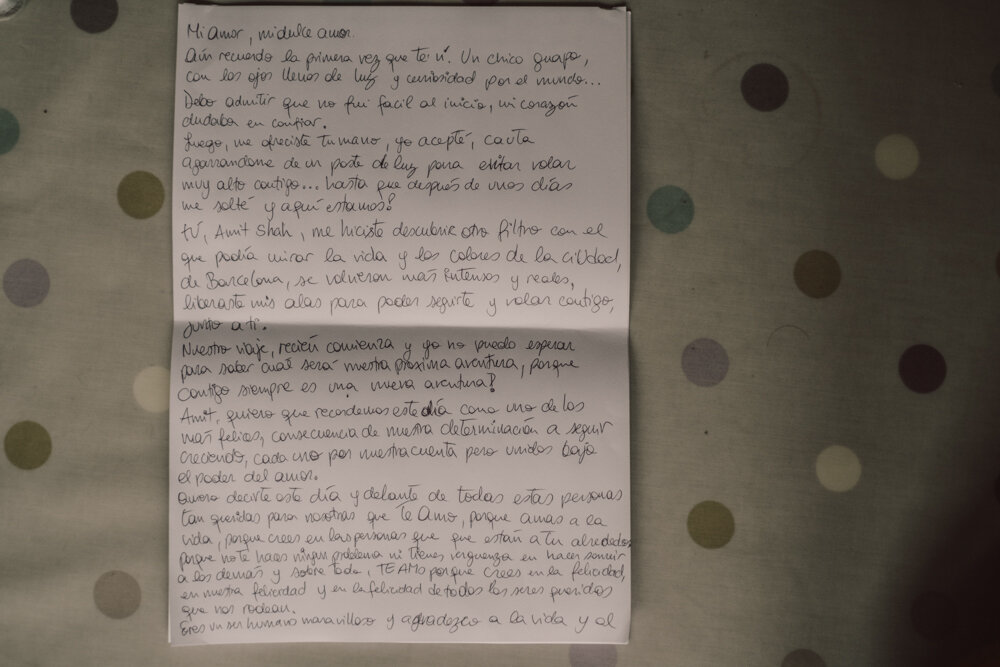 Mi Amor, mi dulce amor.
Aún recuerdo la primera vez que te vi. Un chico guapo,
con los ojos llenos de luz y curiosidad por el mundo...
Debo admitir que no fui facil al inicio, mi corazón
dudaba en confiar.
Luego, me ofreciste tu mano, yo acepté, cauta
agarrandome de un poste de luz para evitar volar
muy alto contigo... hasta que después de unos días
me solté y aquí estamos!
tú, Amit Shah, me hiciste descubrir otro filtro con el
que podía mirar la vida y los colores de la ciudad,
de Barcelona, se volvieron más intensos y reales,
liberaste mis alas para poder seguirte y volar contigo,
junto a ti.
Nuestro viaje, recién comienza y yo no puedo esperar
para saber cuál será nuestra próxima aventura, porque
contigo siempre es una nueva aventura!
Amit, quiero que recordemos este día como uno de los
más felices, consecuencia de nuestra determinación a seguir
creciendo, cada uno por nuestra cuenta pero unidos bajo
el poder del amor.
Quiero decirte este día y delante de todas estas personas
tan queridas para nosotros que te Amo, porque amas a la
vida, porque crees en las personas que que están a tu alrededor
porque no te haces ningun problema ni tienes verguenza en hacer sonreir
a los demás y sobre todo, TE AMO porque crees en la felicidad,
en nuestra felicidad y en la felicidad de todos los seres queridos
que nos rodean.
Eres un ser humano maravilloso y agradezco a la vida y al